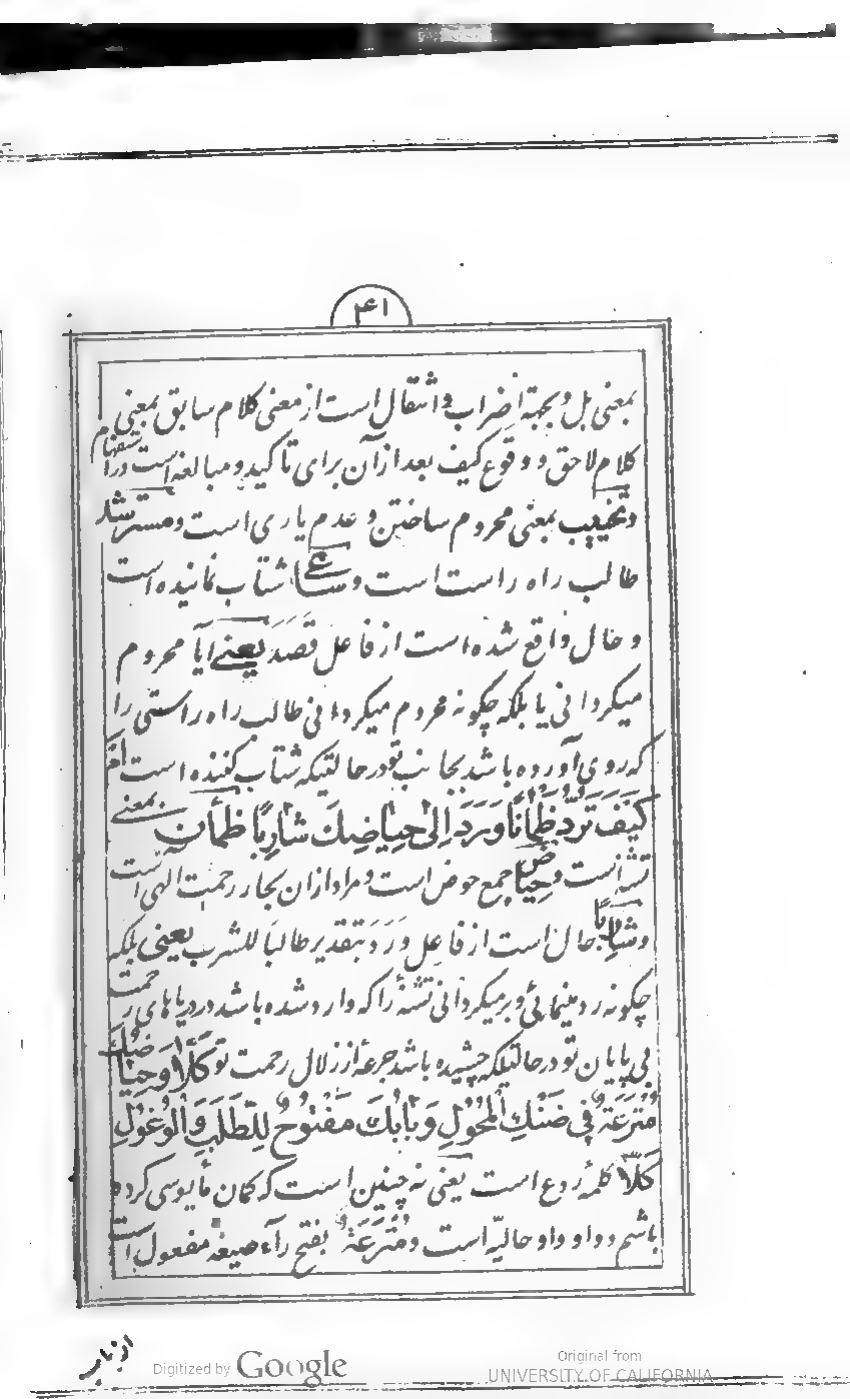 ۴۱
بمعنی بل و بجهة اضراب و انتقال است از معنی کلام سابق بمعنی
کلام لاحق و وقوع کیف بعد از آن برای تاکید و مبالغه است در استفهام
و تخییب بمعنی محروم ساختن و عدم یاری است و مسترشد
طالب راه راست است و شتاب نمانیده است
و حال واقع شده است از فاعل قَصَدَ یعنے آیا محروم
میگردانی یا بلکه چگونه محروم میگردانی طالب راه راستی را
که روی آورده باشد بجانب تو در حالتیکه شتاب کننده است اَمْ
کَیْفَ تَرُدُّ ظَمْاٰنًا وَرَدَ اِلیٰ حِیَاضِكَ شَارِبًا ظمأن بمعنے
تشنه است و حِیَاض جمع حوض است و مراد ازان بحار رحمت الهی است
و شَارِبًا حال است از فاعل وَرَدَ بتقدیر طالبًا للشرب یعنی بلکه
چگونه رد مینمائی و برمیگردانی تشنهٔ را که وارد شده باشد در دریاهای رحمت
بی پایان تو در حالتیکه چشیده باشد جرعهٔ از زلال رحمت تو کَلَّا وَحِیَاضُكَ
مُتْرَعَةٌ فِی ضَنْكِ الْمُحُوْلِ وَبَابُكَ مَفْتُوْحٌ لِلطَّلَبِ وَالْوُغُوْلِ
کَلَّا کلمهٔ ردع است یعنی نه چنین است که گمان مأیوسی کرده
باشم و واو واو حالیّه است و مُتْرَعَةٌ بفتح رآء صیغهٔ مفعول است
از باب
Digitized by Google
Original from
UNIVERSITY OF CALIFORNIA